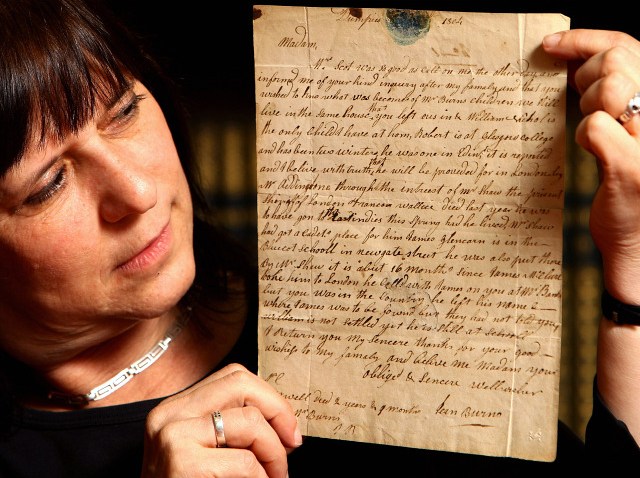 Dumfries 1804
Madam,
Mr Scot was so good as call on me the other day and
informed me of your kind inquiry after my famaly and that you
wished to know what was become of Mr Burns children we still
live in the same house that you left ous in & William who is
the only child I have at hom, Robert is at Glasgow college
and has been two winters he was one in Edinr it is reported
and I believe with truth that he will be provided for in London by
Mr Adington through the intrest of Mr Shaw the present
of London Francis wallace died last year he was
to have gon to the East indies this spring had he lived Mr Shaw
had got a cadets place for him James Glencarn is in the
Bluecot schooll in newgate street he was also put there
by Mr Shaw it is about 16 months since James
him to London he call'd with James on you at Mr
but you was in the Country he left his name &
where James was to be found but they had not told you
william is not settled yet he is still at schooll
I Return you my sencere thanks for your good
wishess to my famaly and belive me Madam your
oblige & sencere wellwisher
Jean Burns
well died 2 years & 9 months
Mr Burns